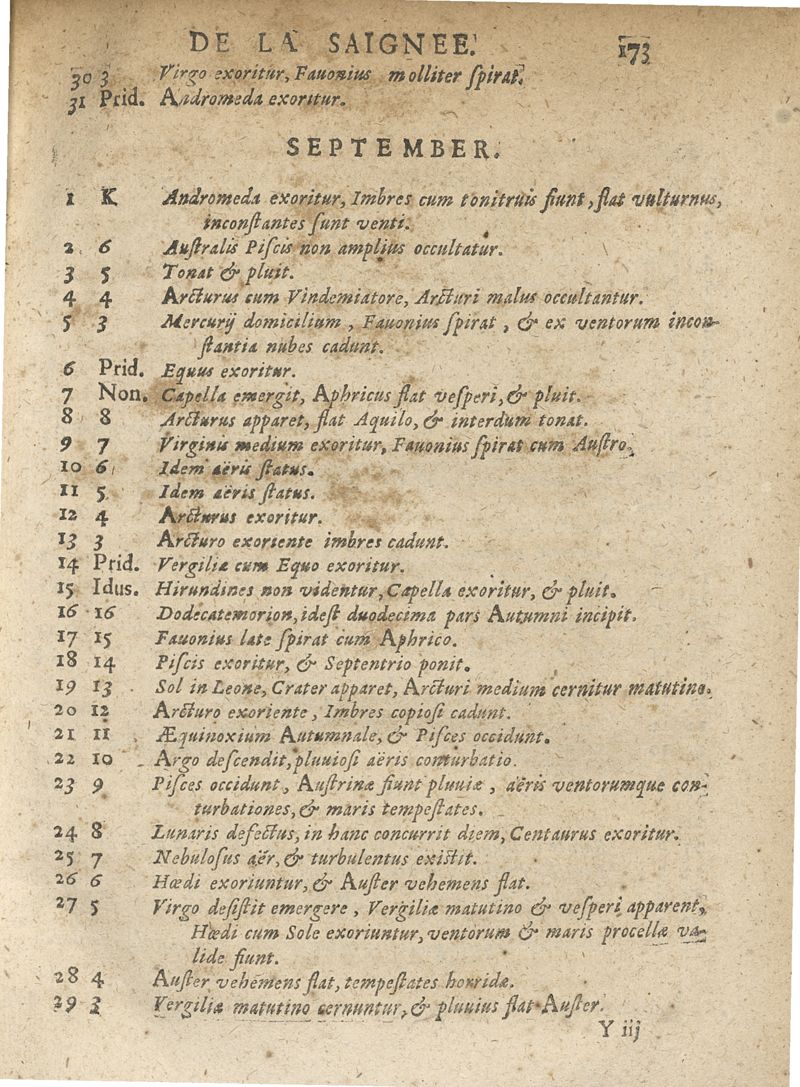 DE LA SAIGNEE. 173
30 3 Virgo exoritur, Fauonius molliter ſpirat.
31 Prid. Andromeda exoritur.
SEPTEMBER.
1 K Andromeda exoritur, Imbres cum tonitruis fiunt, flat vulturnus,
inconſtantes ſunt venti.
2 6 Auſtralis Piſcis non amplius occultatur.
3 5 Tonat & pluit.
4 4 Arcturus cum Vindemiatore, Arcturi malus occultantur.
5 3 Mercurij domicilium, Fauonius ſpirat, & ex ventorum incon-
ſtantia nubes cadunt.
6 Prid. Equus exoritur.
7 Non. Capella emergit, Aphricus flat veſperi, & pluit.
8 8 Arcturus apparet, flat Aquilo, & interdum tonat.
9 7 Virginis medium exoritur, Fauonius ſpirat cum Auſtro.
10 6 Idem aëris ſtatus.
11 5 Idem aëris ſtatus.
12 4 Arcturus exoritur.
13 3 Arcturo exoriente imbres cadunt.
14 Prid. Vergiliæ cum Equo exoritur.
15 Idus. Hirundines non videntur, Capella exoritur, & pluit.
16 16 Dodecatemorion, ideſt duodecima pars Autumni incipit.
17 15 Fauonius late ſpirat cum Aphrico.
18 14 Piſcis exoritur, & Septentrio ponit.
19 13 Sol in Leone, Crater apparet, Arcturi medium cernitur matutino.
20 12 Arcturo exoriente, Imbres copioſi cadunt.
21 11 Æquinoxium Autumnale, & Piſces occidunt.
22 10 Argo deſcendit, pluuioſi aëris conturbatio.
23 9 Piſces occidunt, Auſtrinæ fiunt pluuiæ, aëris ventorumque con-
turbationes, & maris tempeſtates.
24 8 Lunaris defectus, in hanc concurrit diem, Centaurus exoritur.
25 7 Nebuloſus aër, & turbulentus exiſtit.
26 6 Hœdi exoriuntur, & Auſter vehemens flat.
27 5 Virgo deſiſtit emergere, Vergiliæ matutino & veſperi apparent,
Hœdi cum Sole exoriuntur, ventorum & maris procellæ va-
lide fiunt.
28 4 Auſter vehemens flat, tempeſtates horridæ.
29 3 Vergiliæ matutino cernuntur, & pluuius flat Auſter.
Y iij